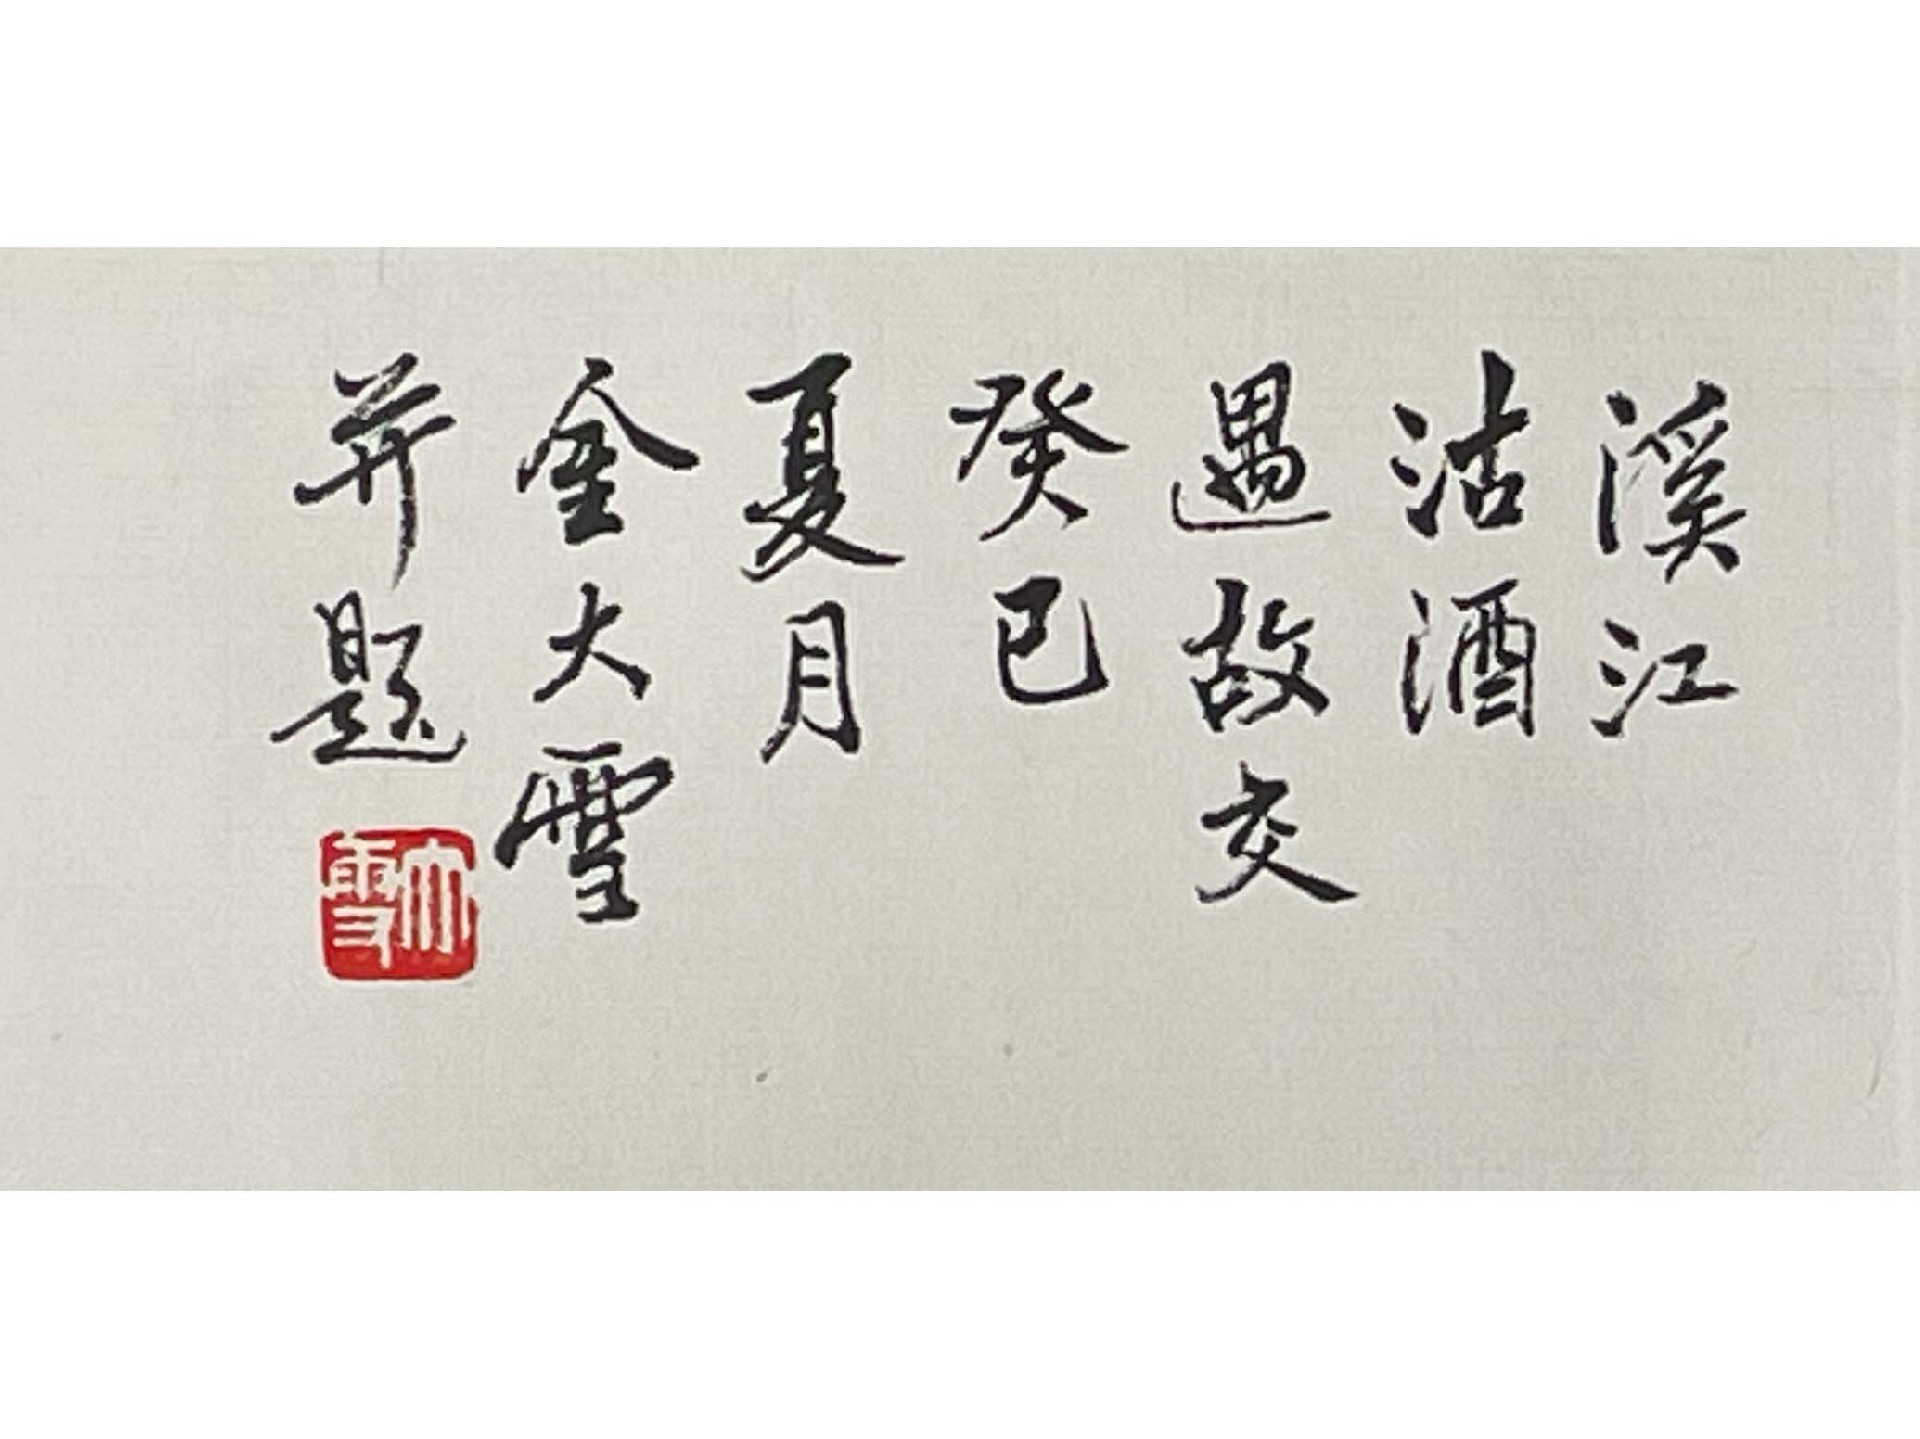 溪江
沽酒
遇故交
癸巳
夏月
金大雪
并題
大雪